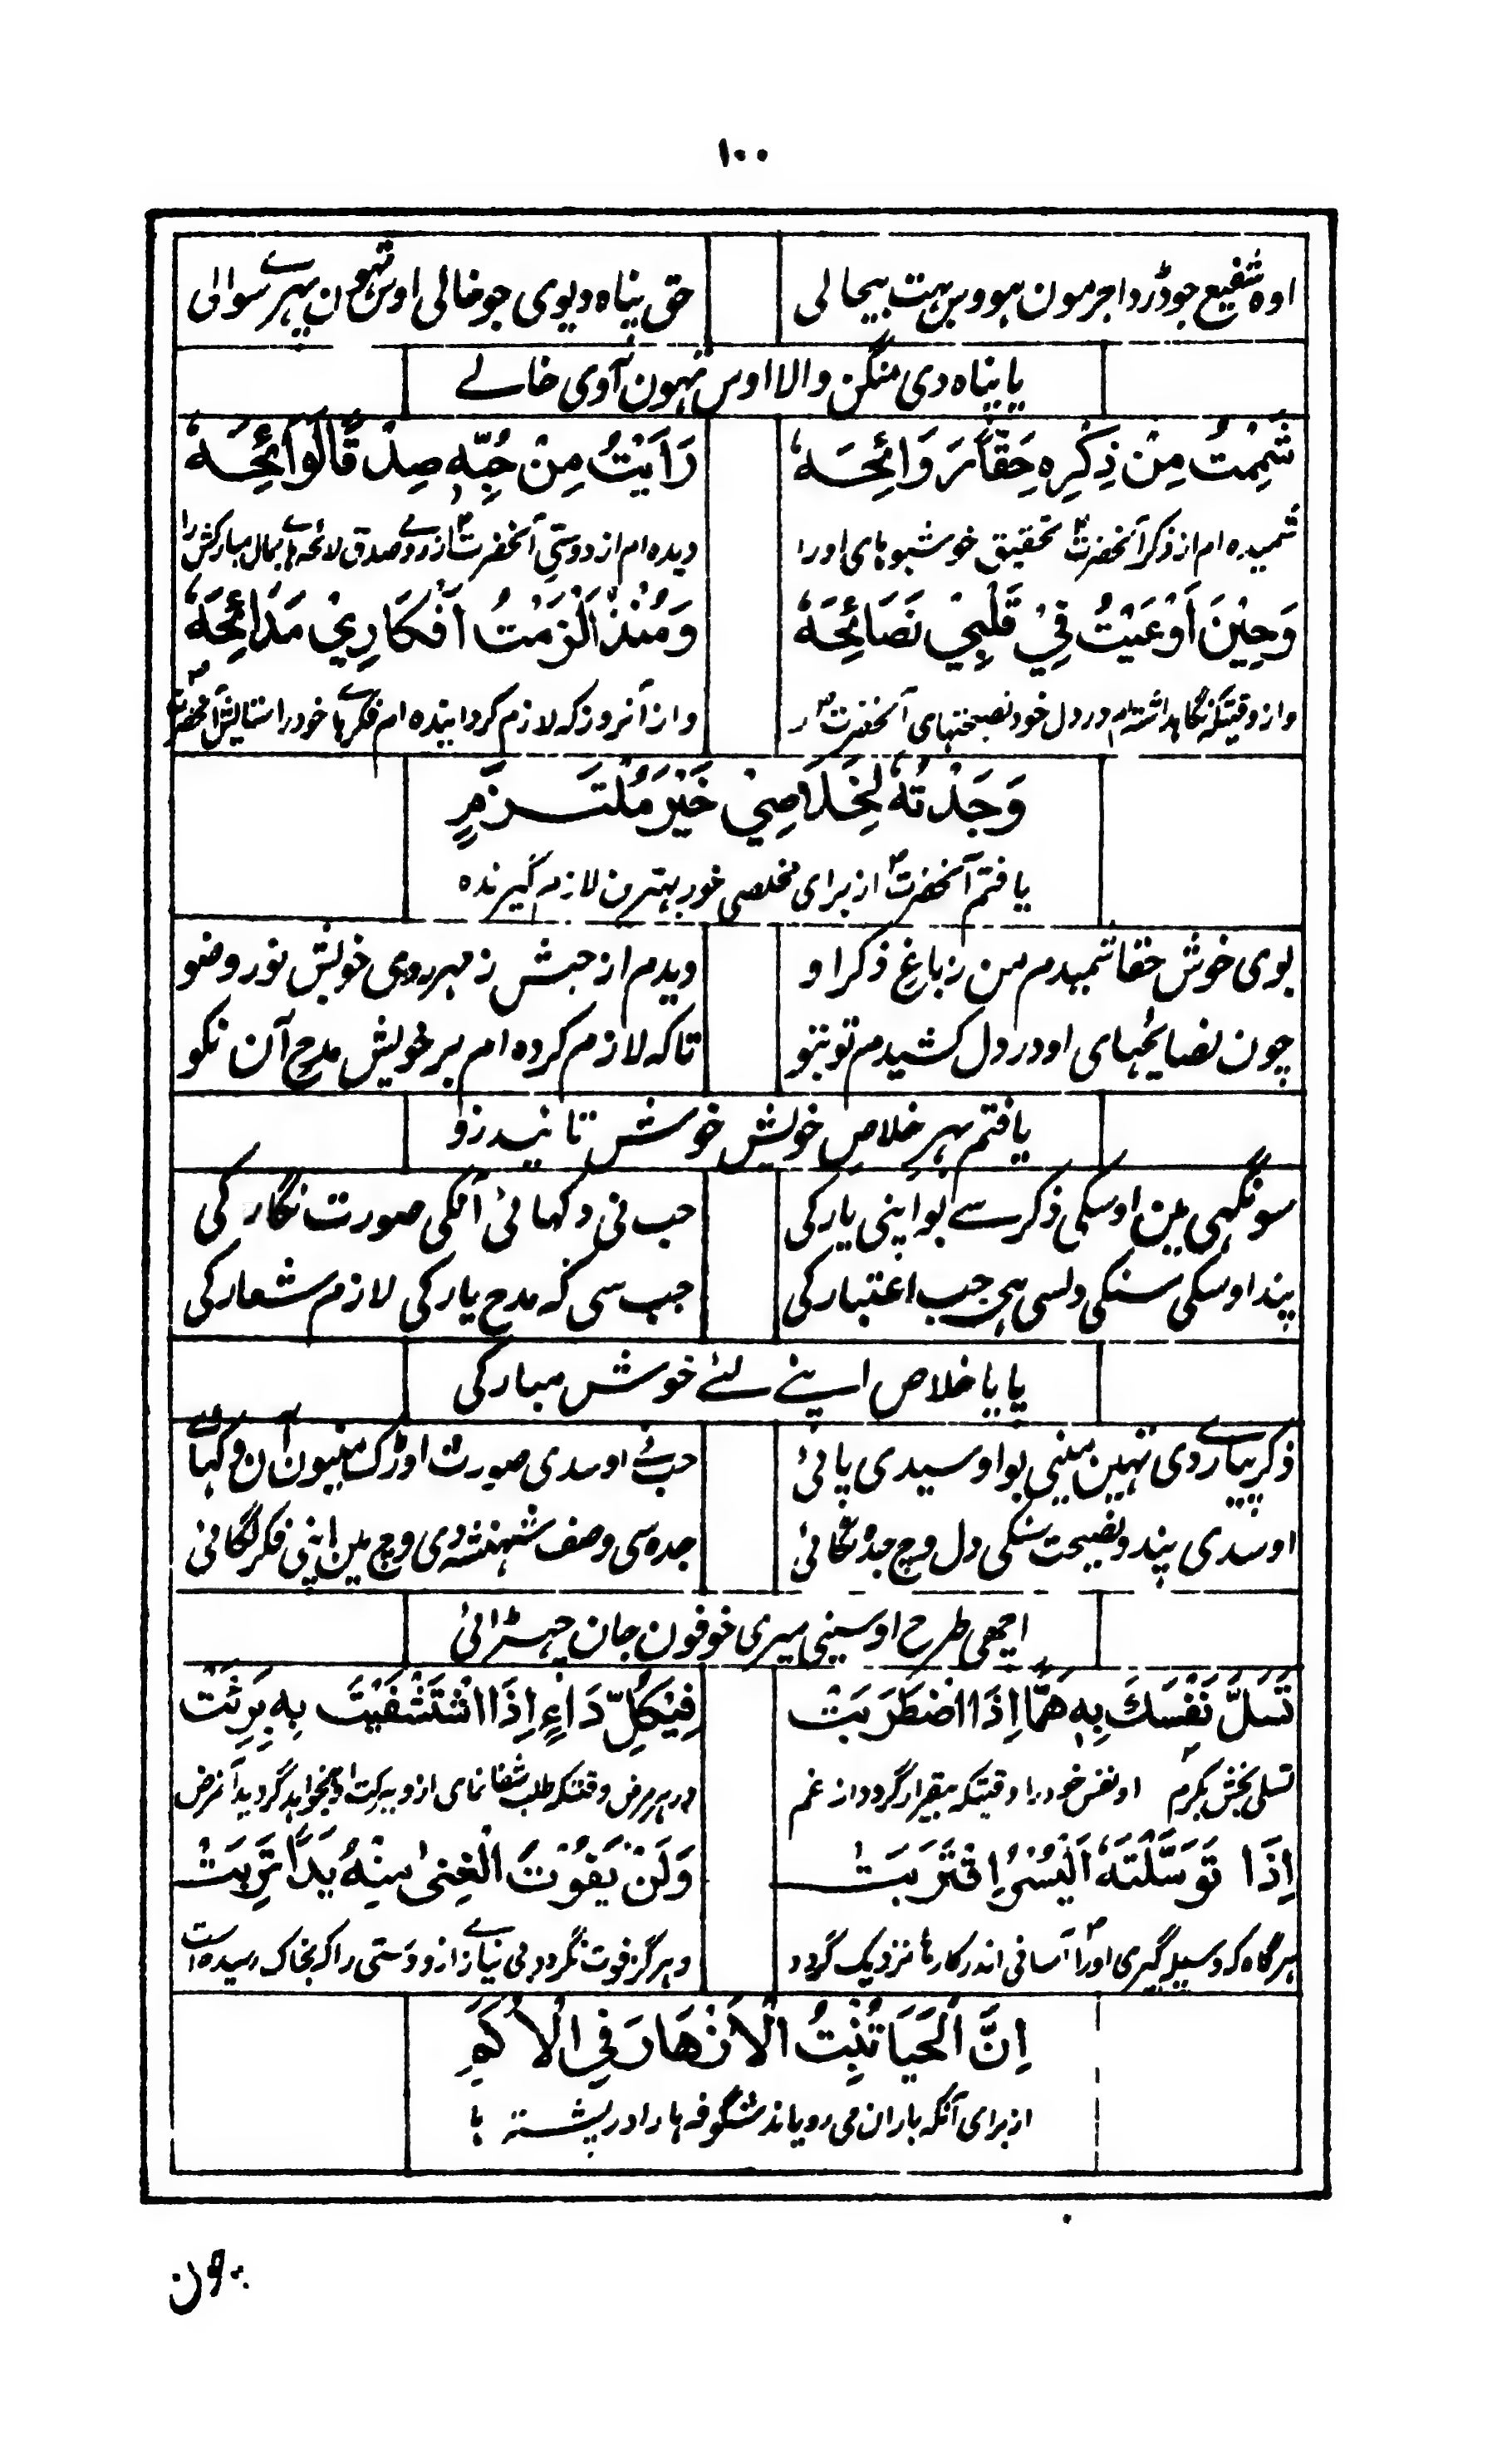 ۱۰۰
اوہ شفیع جو ڈردا جرمون ہووس بہت بیحالی
حق پناہ دیوی جو خالی اوس تہون ن پہرے سوالی
یا پناہ دی منگن والا اوس تہون آوی خالے
شَمِمْتُ مِنْ ذِكْرِهِ حَقًّا رَوَائِحَهٗ
رَاَيْتُ مِنْ حُبِّهٖ صِدْقًا لَوَائِحَهٗ
شمیدہ ام از ذکر آنحضرتؐ تحقیق خوشبوہای اورا
دیدہ ام از دوستی آنحضرتؐ ازروے صدق لائحہاے جمال مبارکش را
وَحِيْنَ اَوْعَيْتُ فِيْ قَلْبِيْ نَصَائِحَهٗ
وَمُنْذُ اَلْزَمْتُ اَفْكَارِيْ مَدَائِحَهٗ
وازوقتیکہ نگاہداشتہ ام در دل خود نصیحتہای آنحضرتؐ ر
وازآنروز کہ لازم گردانیدہ ام فکرہاے خود را ستایش آنحضرتؐ
وَجَدْتُهٗ لِخَلَاصِيْ خَيْرَ مُلْتَزِمٍ
یافتم آنحضرتؐ از برای مخلصی خود بہترین لازم گیرندہ
بوی خوش حقا شمیدم من زباغ ذکر او
دیدم از حبش ز مہر روی خویش نور وضو
چون نصایحہای او در دل کشیدم تو بتو
تا کہ لازم کردہ ام بر خویش مدح آن نکو
یافتم بہر خلاص خویش خوش تائید زو
سونگہی مین اوسکی ذکر سے بو اپنی یار کی
حب نی دکہائی آنکی صورت نگار کی
پند اوسکی سنکی دلسی ہی جب اعتبار کی
جب سی کہ مدح یار کی لازم شعار کی
پایا خلاص اپنے لئے خوش مبارکی
ذکر پیارے دی تہین مینی بو اوسیدی پائی
حب اوسدی صورت اوڑک مینیون آن دکہائے
اوسدی پند و نصیحت سنکی دل وچ جد ٹکائی
جدہ سی وصف شہنشہ دی وچ مین اپنی فکر لگائی
اچھی طرح اوسینی میری خوفون جان چہڑائی
تَسَلَّ نَفْسَكَ بِهٖ هَمًّا اِذَا اضْطَرَبَتْ
فَبِكُلِّ دَاءٍ اِذَا اسْتَشْفَيْتَ بِهٖ بَرِئَتْ
تسلی بخش بکرم او نفس خود را وقتیکہ بیقرار گردد از غم
در ہر مرض وقتیکہ طلب شفا نمای ازو ببرکت او بخواہد گردید آنمرض
اِذَا تَوَسَّلْتَهٗ اَلْيُسْرُ اِقْتَرَبَتْ
وَلَنْ يَفُوْتَ الْغِنٰى مِنْهُ يَدًا تَرِبَتْ
ہرگاہ کہ وسیلہ گیری اوراؐ آسانی اندر کارہا نزدیک گردد
و ہرگز فوت نگردد بی نیازے ازو دستی را کہ بخاک رسیدہ است
اِنَّ الْحَيَا تُنْبِتُ الْاَزْهَارَ فِي الْاَكَمِ
از برای آنکہ باران می رویاند شگوفہ ہا را در پشتہ ہا